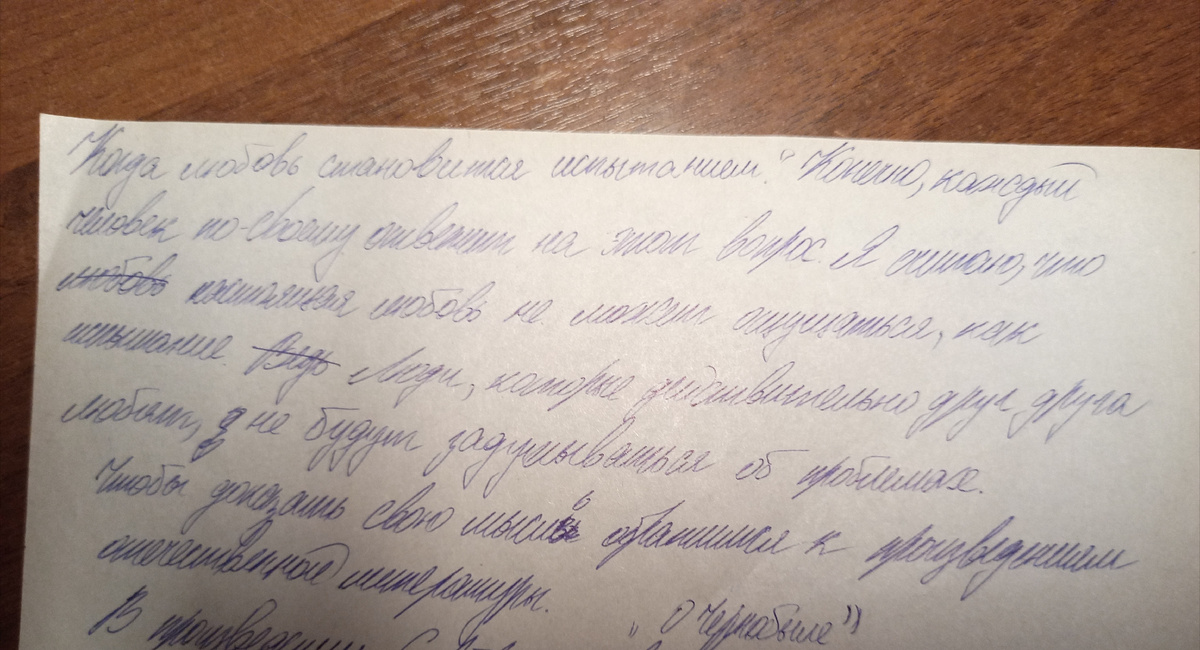 "Когда любовь становится испытанием." Конечно, каждый
человек по-своему ответит на этот вопрос. Я считаю, что
любовь настоящая любовь не может ощущаться, как
испытание. Ведь Люди, которые действительно друг друга
любят, не будут задумываться об проблемах.
Чтобы доказать свою мысль обратимся к произведениям
отечественной литературы.
В произведении "О Чернобыле"